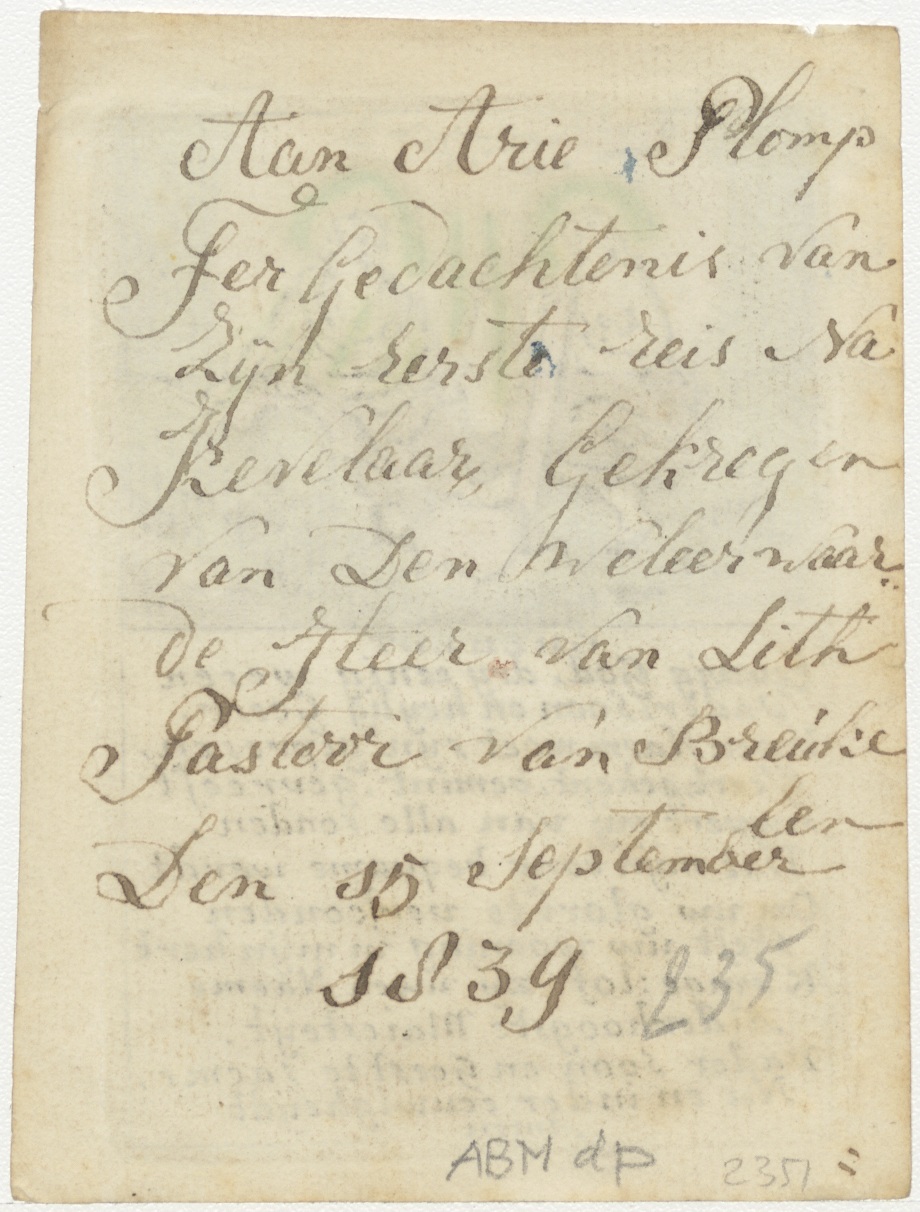 Aan Arie Plomp
Ter Gedachtenis van
Zijn eerste reis Na
Kevelaar, Gekregen
van Den Weleerwaar„
de Heer van Lith
Pastoor van Breuke
len
Den 15 September
1839 235
ABM dp 2351